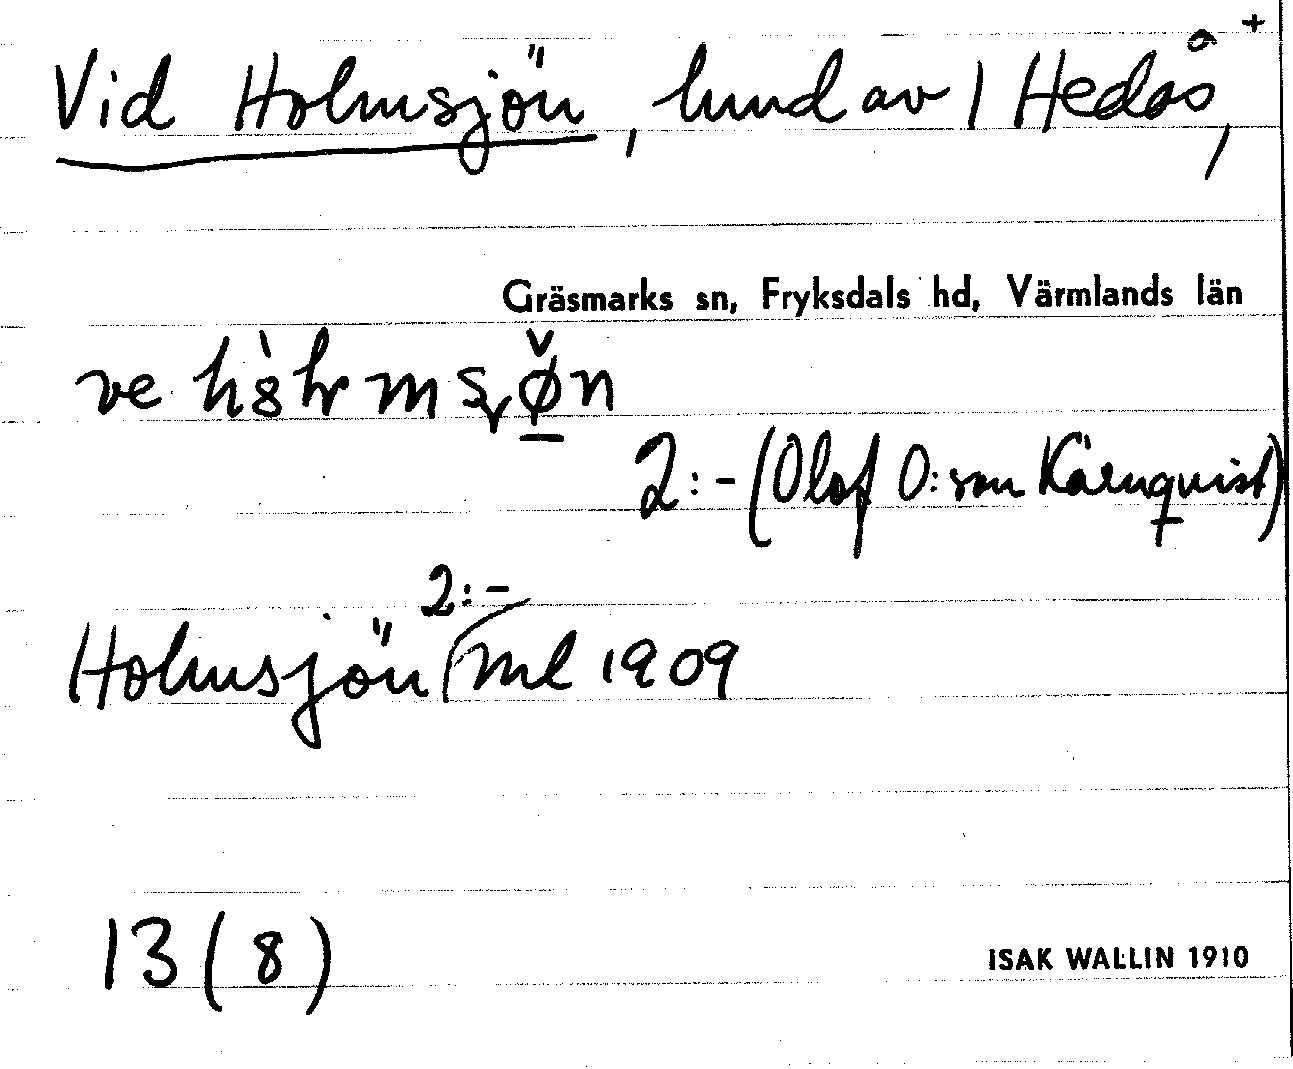 Vid Holmsjön, hmd av 1 Hedås, +
Gräsmarks sn, Fryksdals hd, Värmlands län
ve
2:- (Olof O:son Kärnqvist)
2:-
Holmsjön (ml 1909
13 (8)
ISAK WALLIN 1910